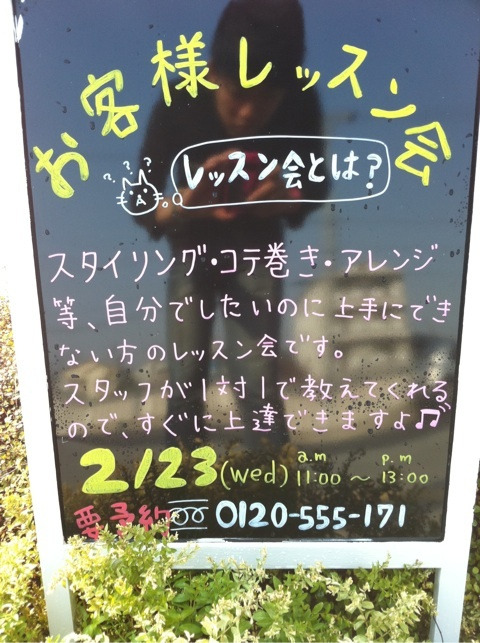 お客様レッスン会
???
レッスン会とは?
スタイリング・コテ巻き・アレンジ
等、自分でしたいのに上手にでき
ない方のレッスン会です。
スタッフが1対1で教えてくれる
ので、すぐに上達できますよ♫
2/23(wed) a.m 11:00 ~ p.m 13:00
要予約 0120-555-171